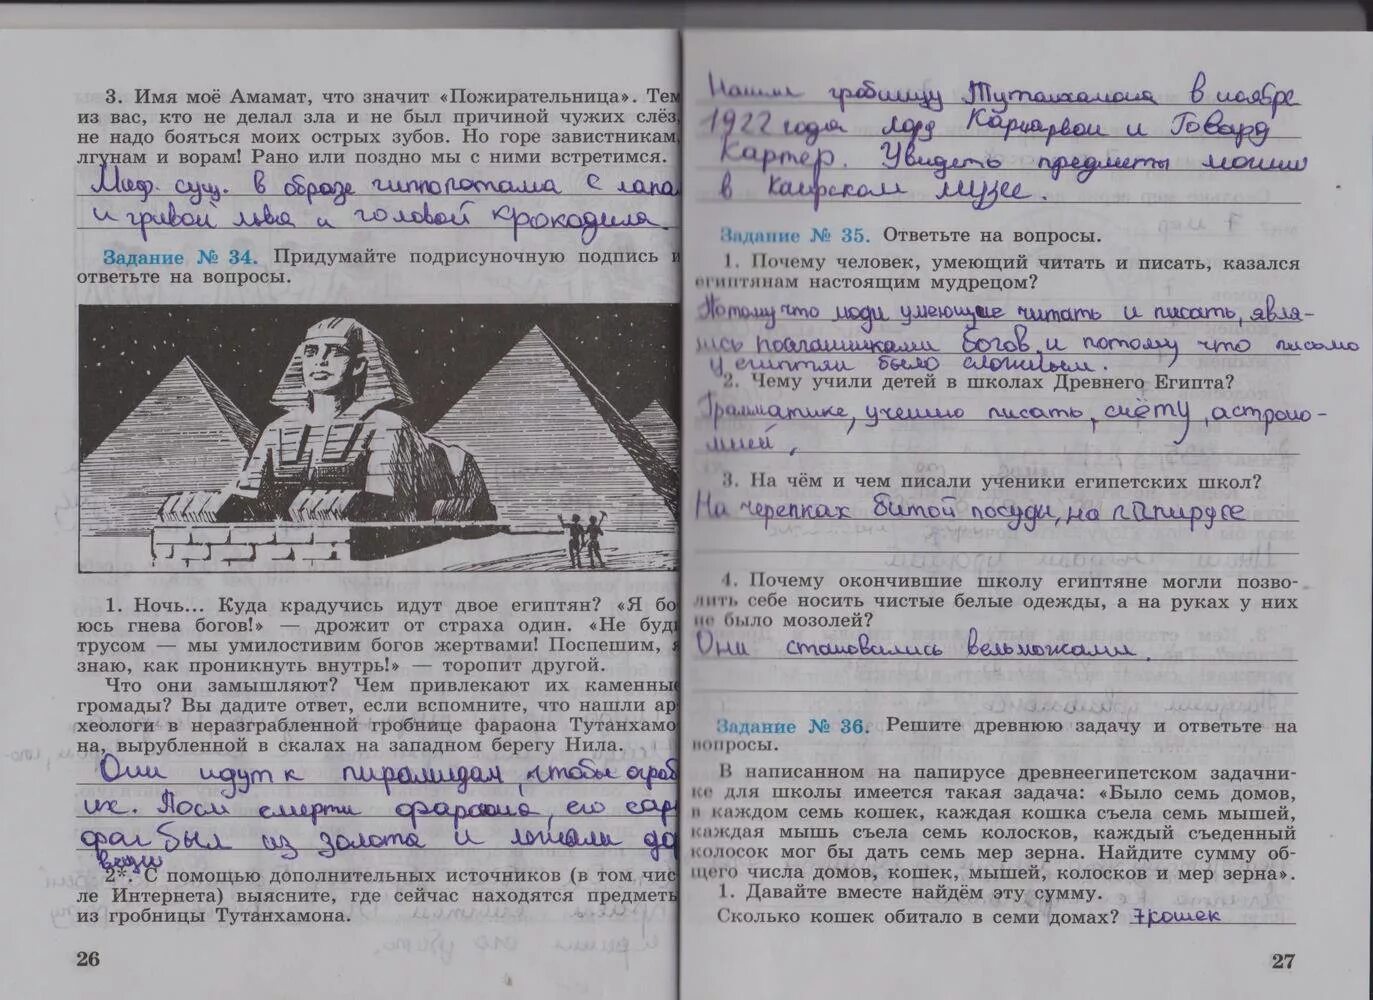 3. Имя моё Амамат, что значит «Пожирательница». Тем
из вас, кто не делал зла и не был причиной чужих слёз,
не надо бояться моих острых зубов. Но горе завистникам,
лгунам и ворам! Рано или поздно мы с ними встретимся.
Миф. сущ. в образе гиппопотама с лапа
и гривой льва и головой крокодила.
Задание № 34. Придумайте подрисуночную подпись и
ответьте на вопросы.
1. Ночь... Куда крадучись идут двое египтян? «Я бо
юсь гнева богов!» — дрожит от страха один. «Не будь
трусом — мы умилостивим богов жертвами! Поспешим, я
знаю, как проникнуть внутрь!» — торопит другой.
Что они замышляют? Чем привлекают их каменные
громады? Вы дадите ответ, если вспомните, что нашли ар
хеологи в неразграбленной гробнице фараона Тутанхамо
на, вырубленной в скалах на западном берегу Нила.
Они идут к пирамидам, чтобы ограб
их. После смерти фараона, его сар
фаг был из золота и лежали до
вещи
2*. С помощью дополнительных источников (в том чис
ле Интернета) выясните, где сейчас находятся предметы
из гробницы Тутанхамона.
26
Нашли гробницу Тутанхамона в ноябре
1922 года лорд Карнарвон и Говард
Картер. Увидеть предметы можно
в Каирском музее.
Задание № 35. Ответьте на вопросы.
1. Почему человек, умеющий читать и писать, казался
египтянам настоящим мудрецом?
Потому что люди умеющие читать и писать, явля-
лись посланниками богов и потому что письмо
у египтян было сложным.
2. Чему учили детей в школах Древнего Египта?
Грамматике, учению писать, счёту, астроно-
мией,
3. На чём и чем писали ученики египетских школ?
На черепках битой посуды, на папирусе
4. Почему окончившие школу египтяне могли позво-
лить себе носить чистые белые одежды, а на руках у них
не было мозолей?
Они становились вельможами.
Задание № 36. Решите древнюю задачу и ответьте на
вопросы.
В написанном на папирусе древнеегипетском задачни-
ке для школы имеется такая задача: «Было семь домов,
в каждом семь кошек, каждая кошка съела семь мышей,
каждая мышь съела семь колосков, каждый съеденный
колосок мог бы дать семь мер зерна. Найдите сумму об-
щего числа домов, кошек, мышей, колосков и мер зерна».
1. Давайте вместе найдём эту сумму.
Сколько кошек обитало в семи домах? 7 кошек
27